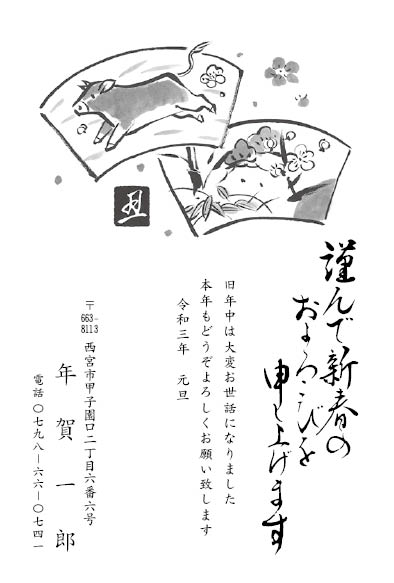 謹んで新春の
およろこびを
申し上げます
旧年中は大変お世話になりました
本年もどうぞよろしくお願い致します
令和三年 元旦
〒663-8113
西宮市甲子園口二丁目六番六号
年賀一郎
電話〇七九八－六六－〇七四一
丑